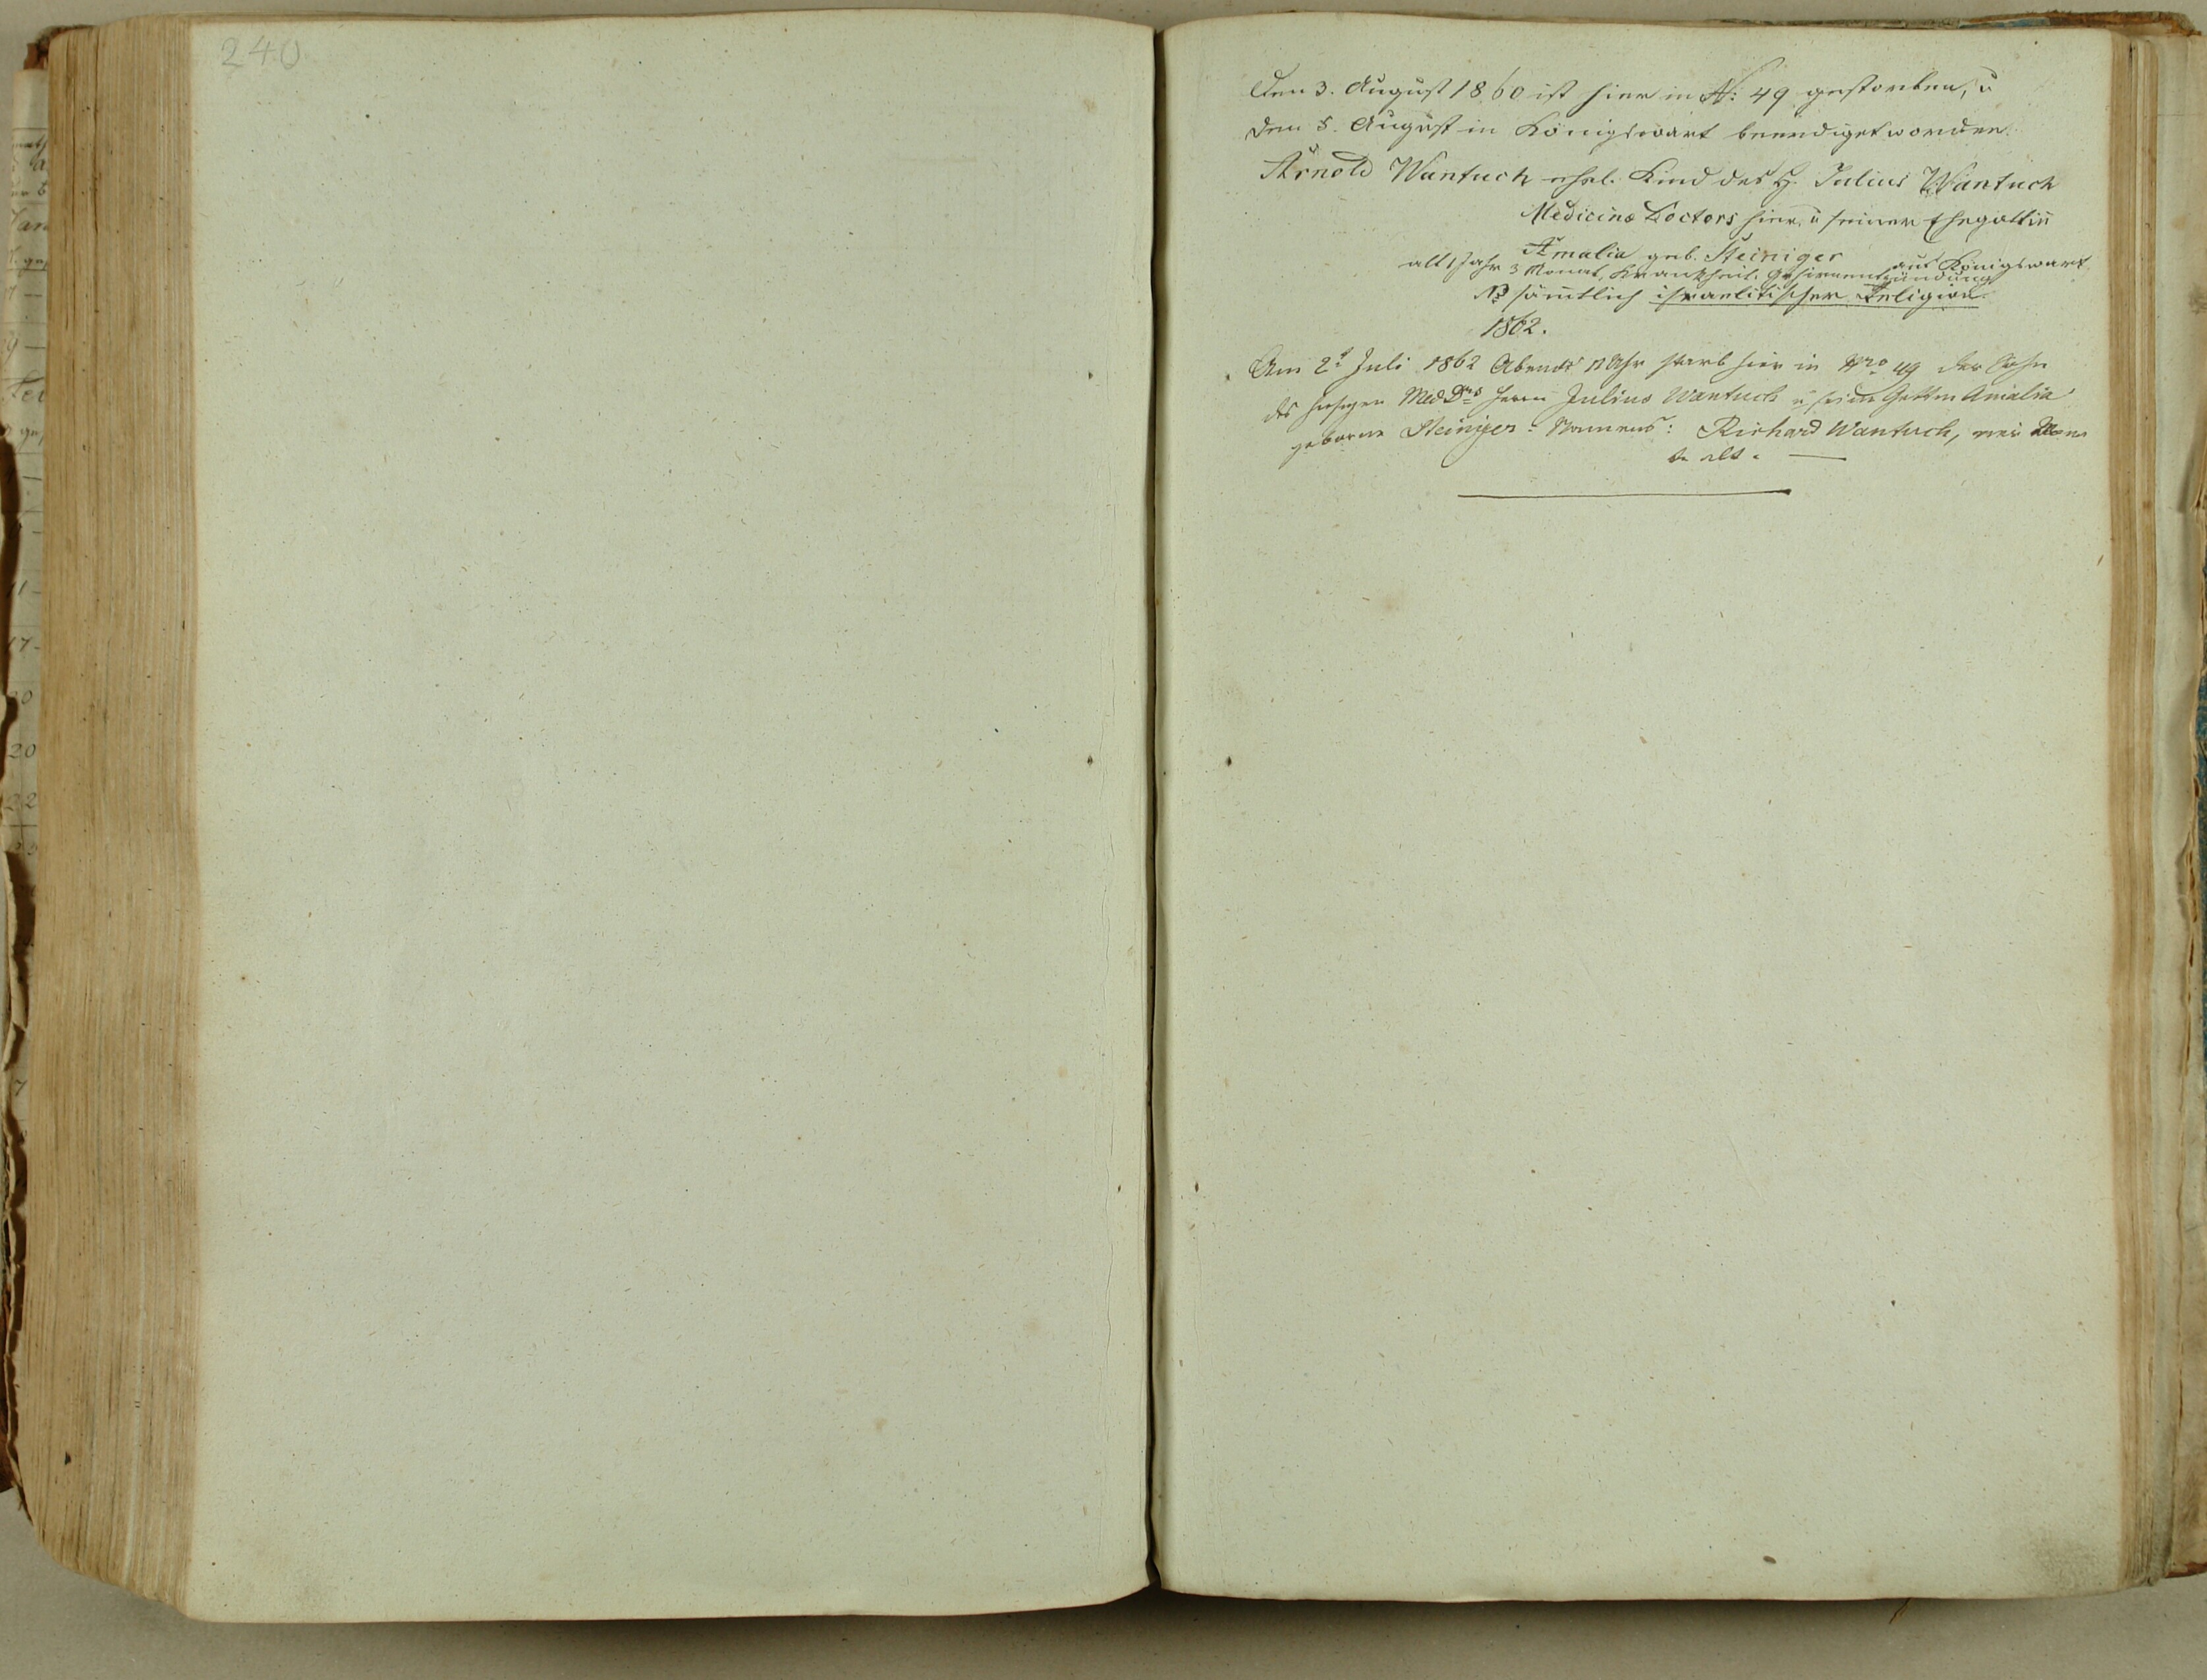 240
Den 3. August 1860 ist hier in N: 49 gestorben, u
den 5. August in Königswart beerdiget worden
Arnold Wantuch ehel. Kind des H. Julius Wantuch
Medicinæ Doctors hier, u seiner Ehegattin
Amalia geb. Steiniger aus Königswart,
alt 1 Jahr 3 Monat, Krankheit. Gehirnentzündung
NB sämtlich israelitischer Religion.
1862.
Am 2t Juli 1862 Abends 11 Uhr starb hier in Nro 49 der Sohn
des hiesigen Med Drs Herrn Julius Wantuch u seiner Gattin Amalia
geborne Steiniger - Namens: Richard Wantuch, Mona
te alt.